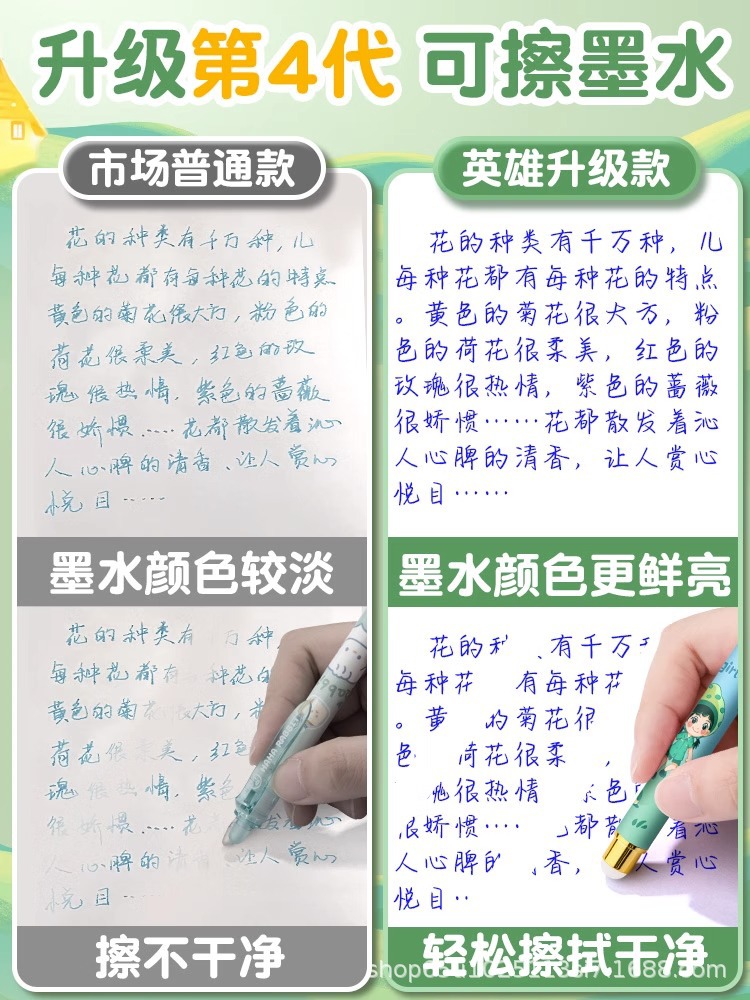 升级第4代 可擦墨水
市场普通款
花的种类有千万种,儿
每种花都有每种花的特点
黄色的菊花很大方,粉色的
荷花很柔美,红色的玫
瑰很热情,紫色的蔷薇
很娇惯……花都散发着沁
人心脾的清香、让人赏心
悦目……
墨水颜色较淡
花的种类有 万种
每种花都有 种花的
黄色的菊花很大方,粉
荷花很柔美,红色
瑰很热情,紫
很娇惯……花 发着沁
人心脾的清香 让人赏心
悦目……
擦不干净
英雄升级款
花的种类有千万种,儿
每种花都有每种花的特点
。黄色的菊花很大方,粉
色的荷花很柔美,红色的
玫瑰很热情,紫色的蔷薇
很娇惯……花都散发着沁
人心脾的清香,让人赏心
悦目……
墨水颜色更鲜亮
花的 、有千万
每种花 有每种花
。黄 的菊花很
色 荷花很柔 ,
很热情 色
很娇惯…… 都散 着沁
人心脾的 香, 人赏心
悦目‥
girl
轻松擦拭干净